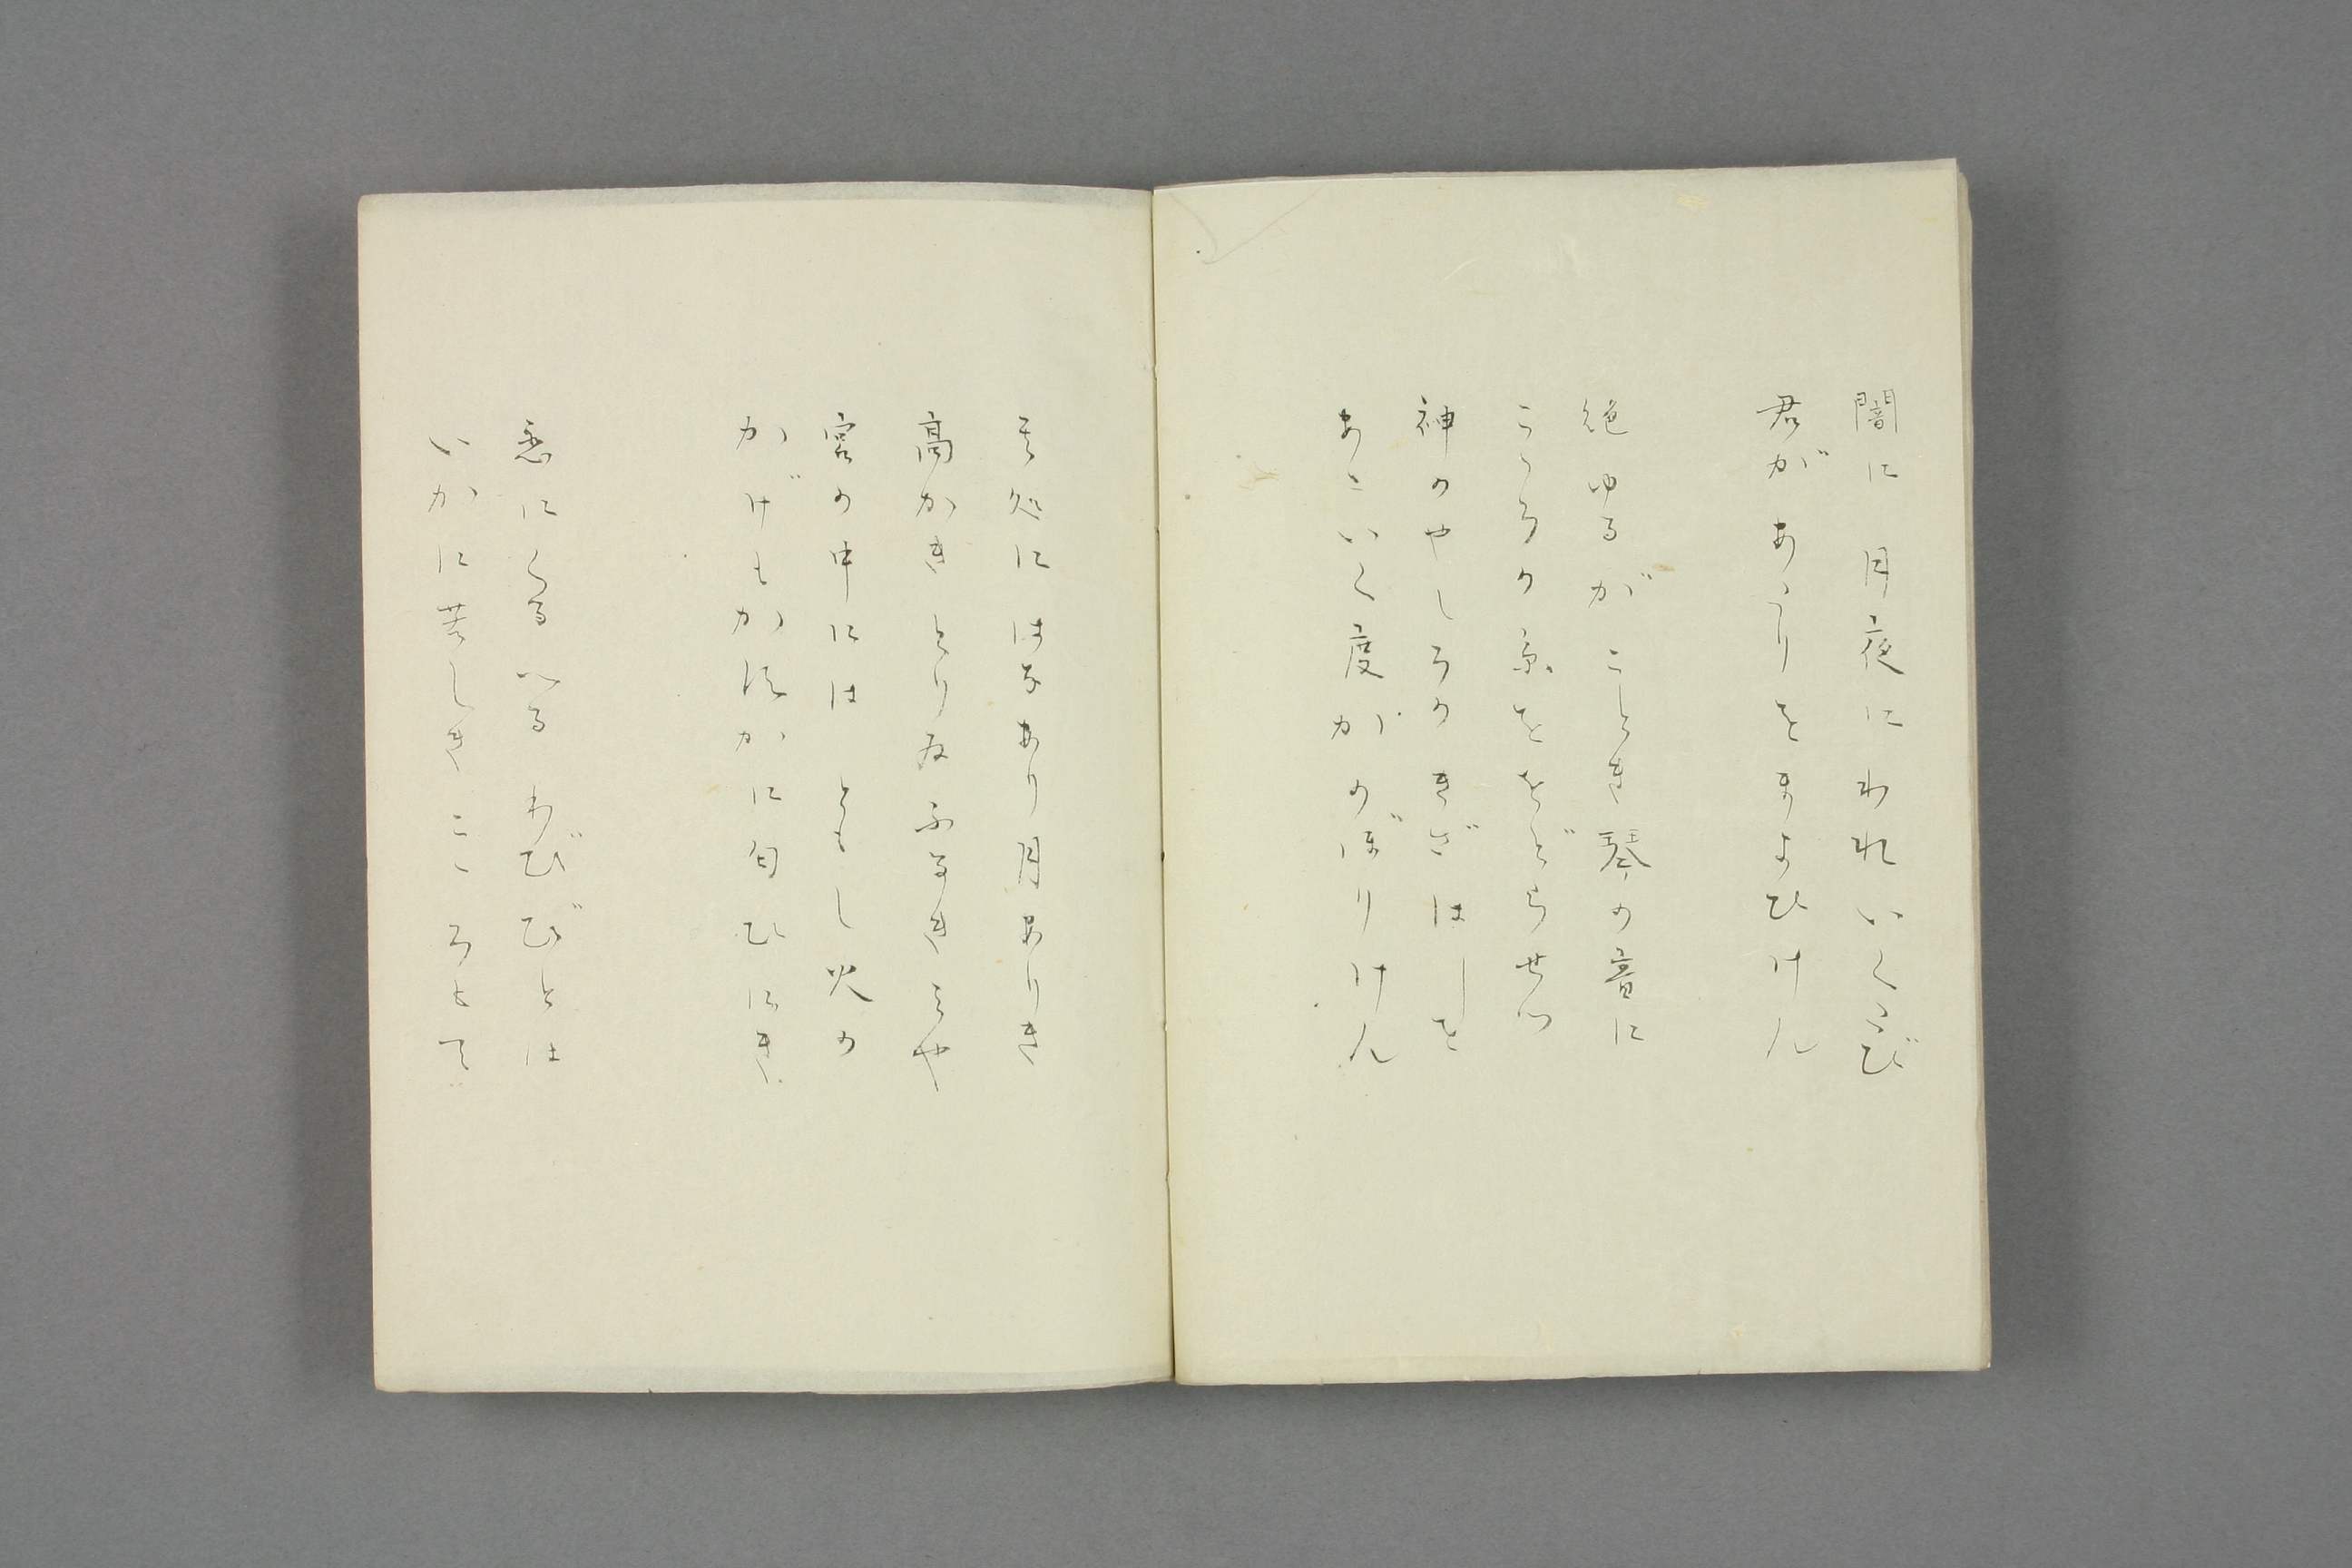 闇に月夜にわれいくたび
君があたりをまよひけん
絶ゆるがごとき琴の音に
こゝろの糸ををどらせつ
神のやしろのきざはしを
あといく度かのぼりけん
其処にはなあり月ありき
高かきとり
宮の中にはともし火の
かげもかすかに匂ひにき
恋にくるへるわびびとは
いかに苦しきこころもて